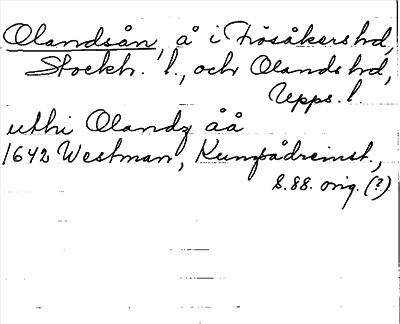 Olandsån, å i Frösåkers hd,
Stockh. l., och Olands hd,
Upps. l.
uthi Olandz åå
1642 Westman,
S. 88. orig. (?)